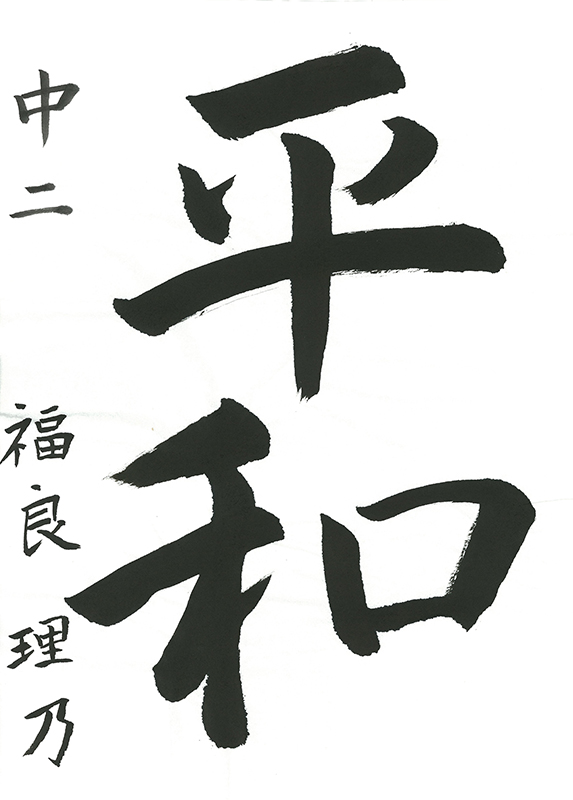 平和
中二 福良 理乃